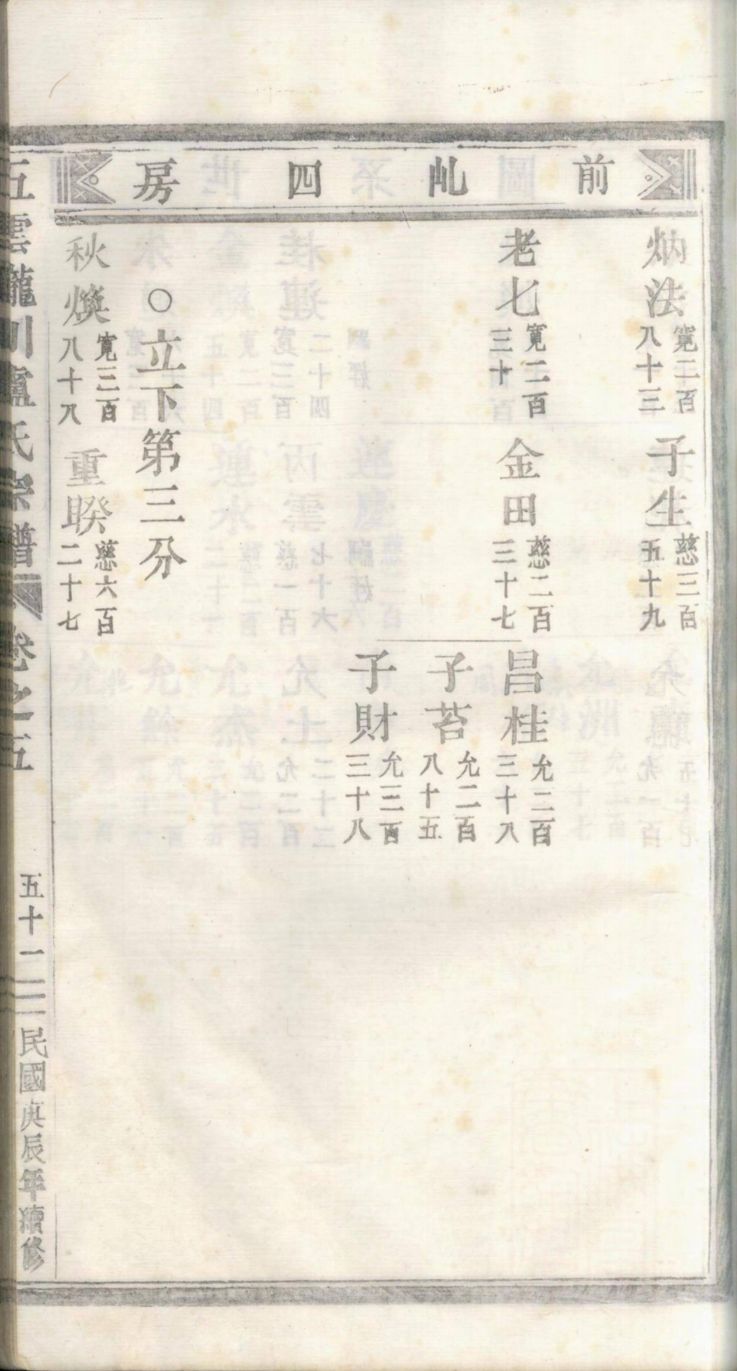 前乢四房
炳法 寬二百八十三
子生 慈三百五十九
老七 寬二百三十
金田 慈二百三十七
昌桂 允二百三十八
子苔 允二百八十五
子財 允三百三十八
○立下第三分
秋煥 寬三百八十八
重暌 慈六百二十七
五雲龍川盧氏宗譜
卷之五
五十一
民國庚辰年續修